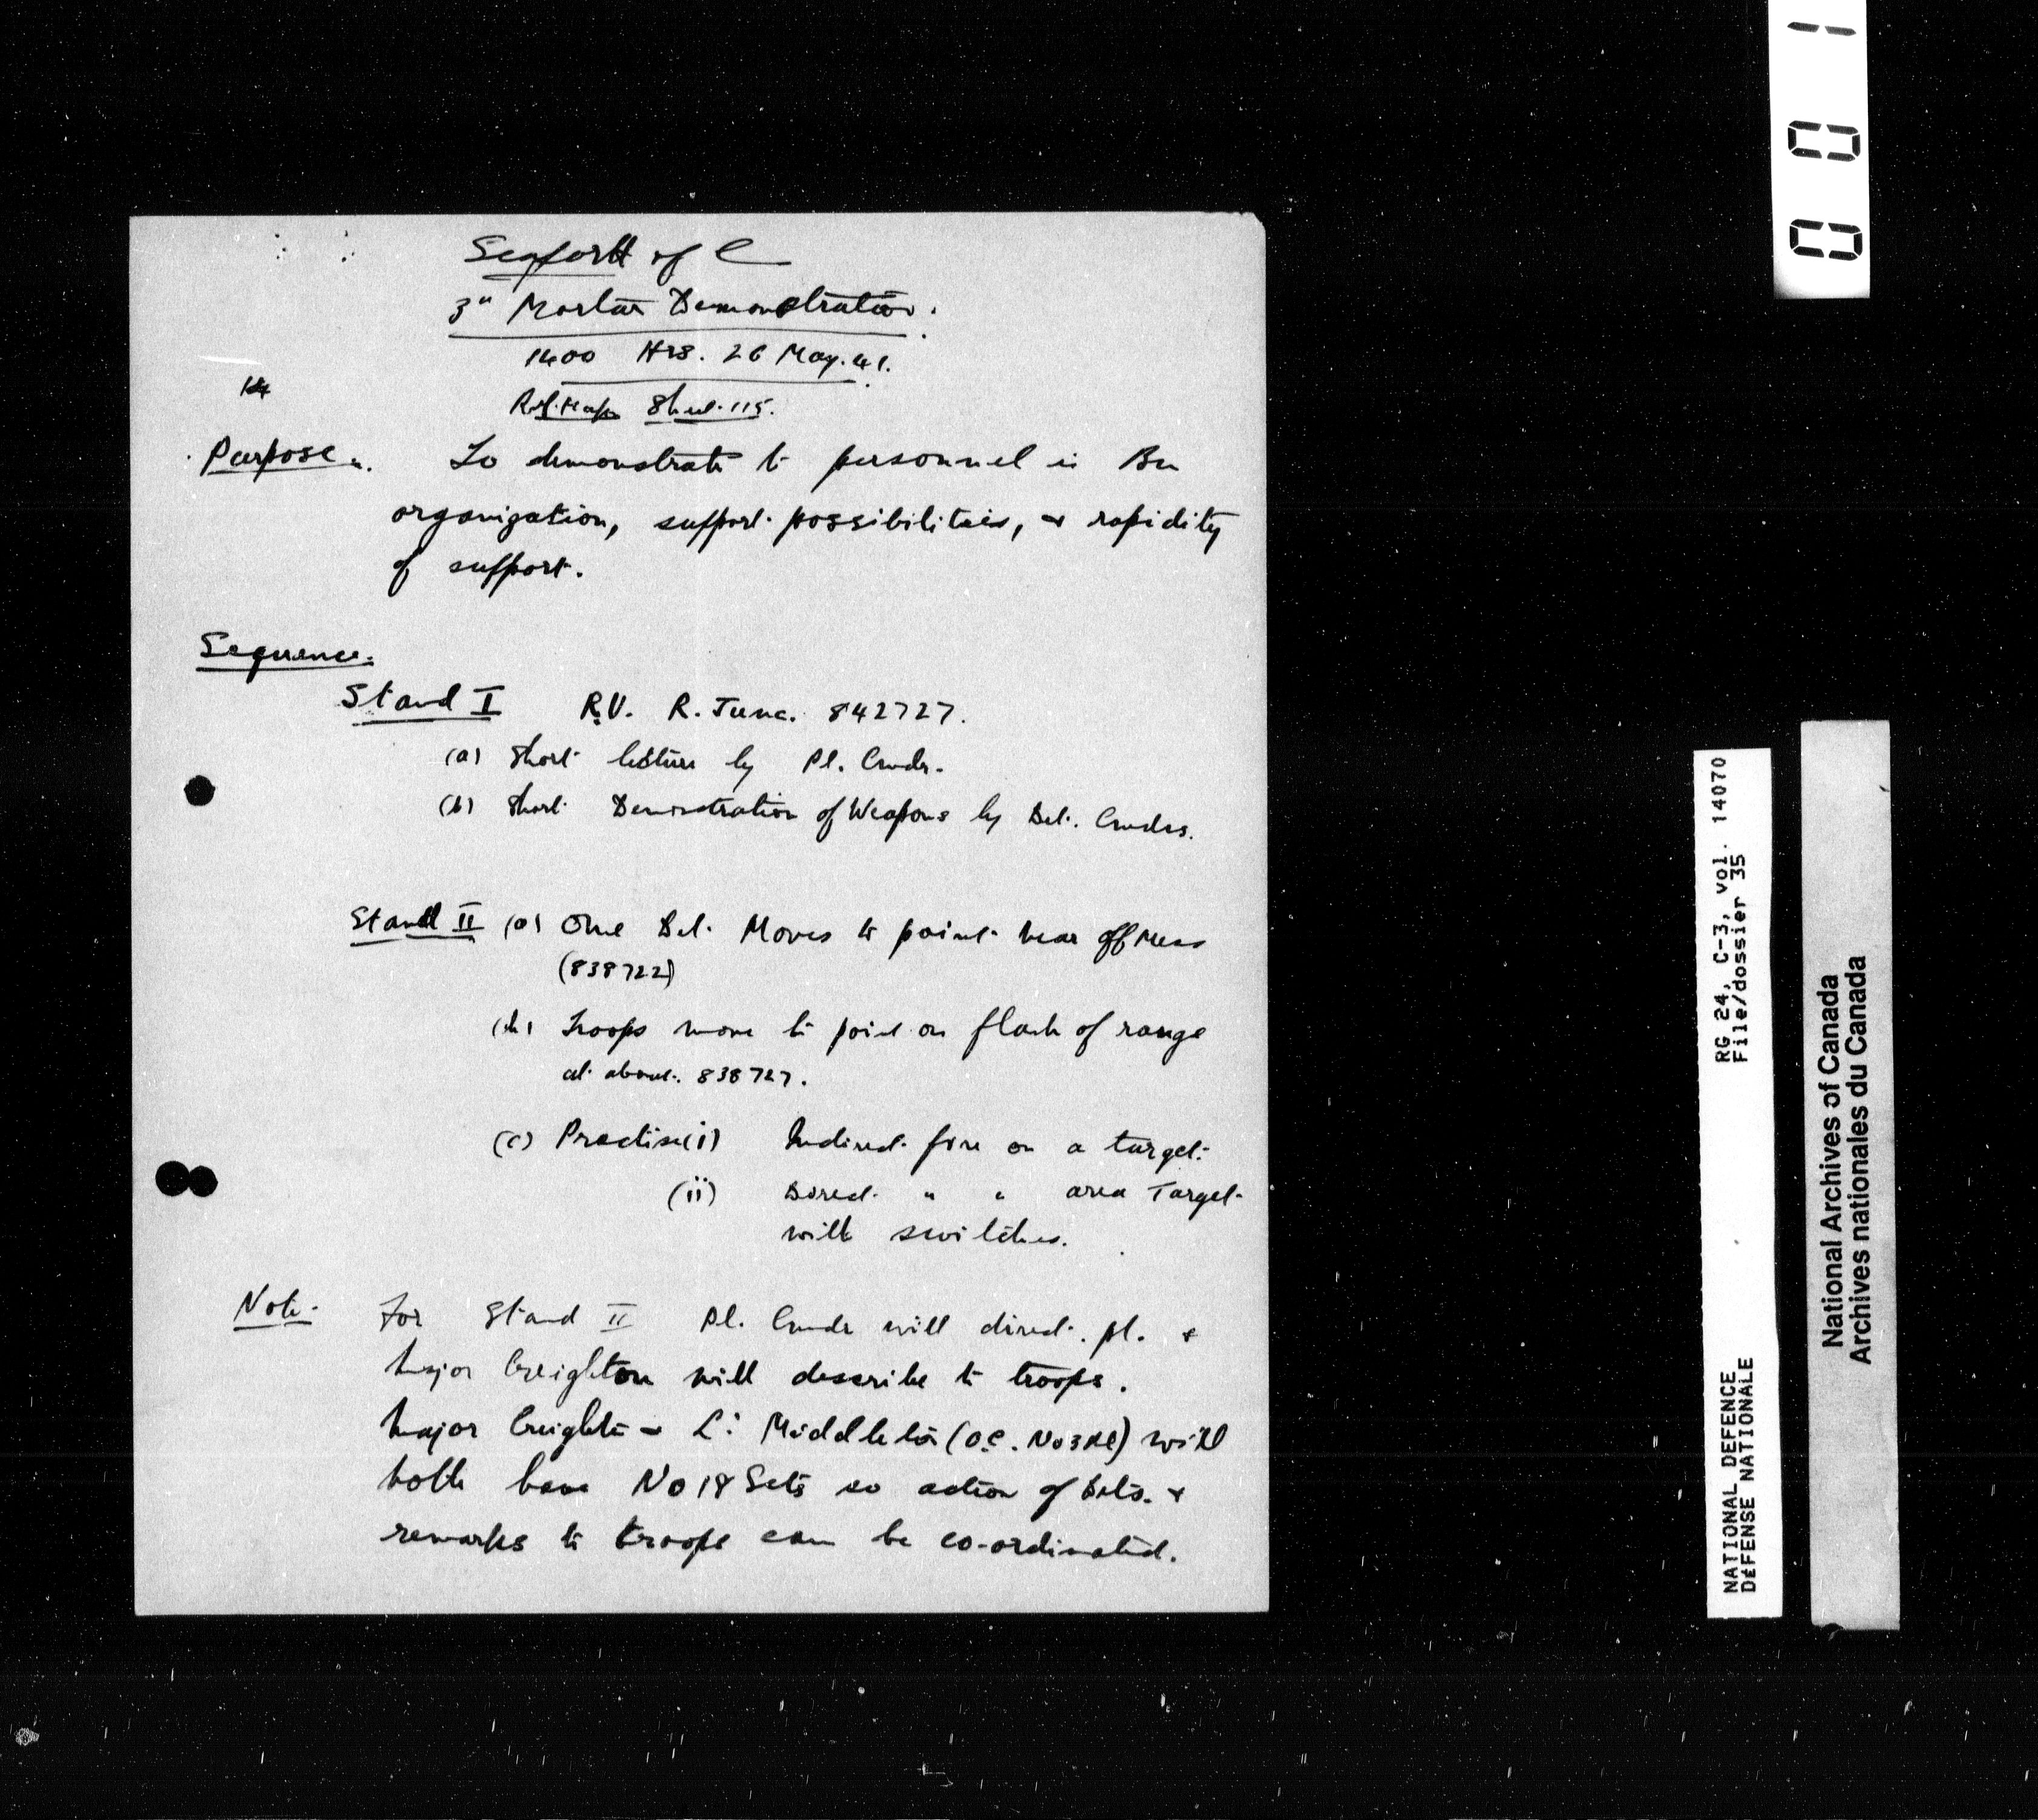 Seaforth of C
3" Mortar Demonstration.
1400 Hrs. 26 May. 41.
Ref. Map Sheet 115.
Purpose. To demonstrate to personnel in Bn
organization, support possibilities, & rapidity
of support.
Sequence.
Stand I R.V. R. Junc. 842727.
(a) Short lecture by Pl. Cmdr.
(b) Short Demonstration of Weapons by Det. Cmdrs.
Stand II (a) One Det. Moves to point near Off Mess
(838722)
(b) Troops move to point on flank of range
at about 838727.
(c) Practise (i) Indirect fire on a target.
(ii) Direct " " area Target
with switches.
Note. For Stand II Pl. Cmdr will direct pl. &
Major Creighton will describe to troops.
Major Creighton & Lt Middleton (O.C. No 3 Pl) will
both have No 18 Sets so action of Dets. &
remarks to troops can be co-ordinated.
001
RG 24, C-3, vol. 14070
File/dossier 35
NATIONAL DEFENCE
DÉFENSE NATIONALE
National Archives of Canada
Archives nationales du Canada